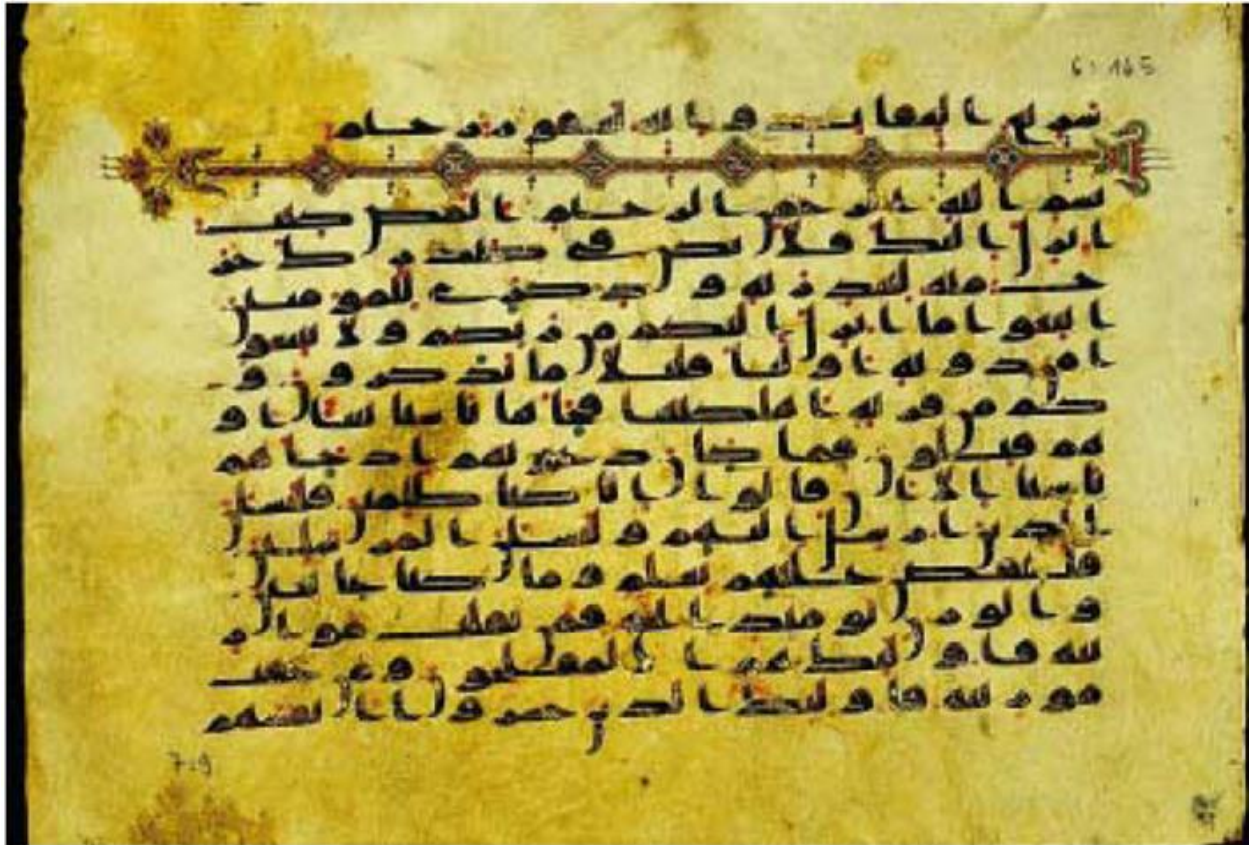 6:165
سريع العقاب وانه لغفور رحيم
بسم الله الرحمن الرحيم المص كتب
انزل اليك فلا يكن في صدرك حر
ج منه لتنذر به وذكرى للمومنين
اتبعوا ما انزل اليكم من ربكم ولا تتبعو
ا من دونه اوليا قليلا ما تذكرون و
كم من قرية اهلكنها فجاها باسنا بيتا او
هم قايلون فما كان دعويهم اذ جاهم
باسنا الا ان قالوا انا كنا ظلمين فلنسلن
الذين ارسل اليهم ولنسلن المرسلين
فلنقصن عليهم بعلم وما كنا غايبين
والوزن يومئذ الحق فمن ثقلت موز
ينه فاوليك هم المفلحون ومن خفت
موزينه فاوليك الذين خسروا انفسهم
7:9